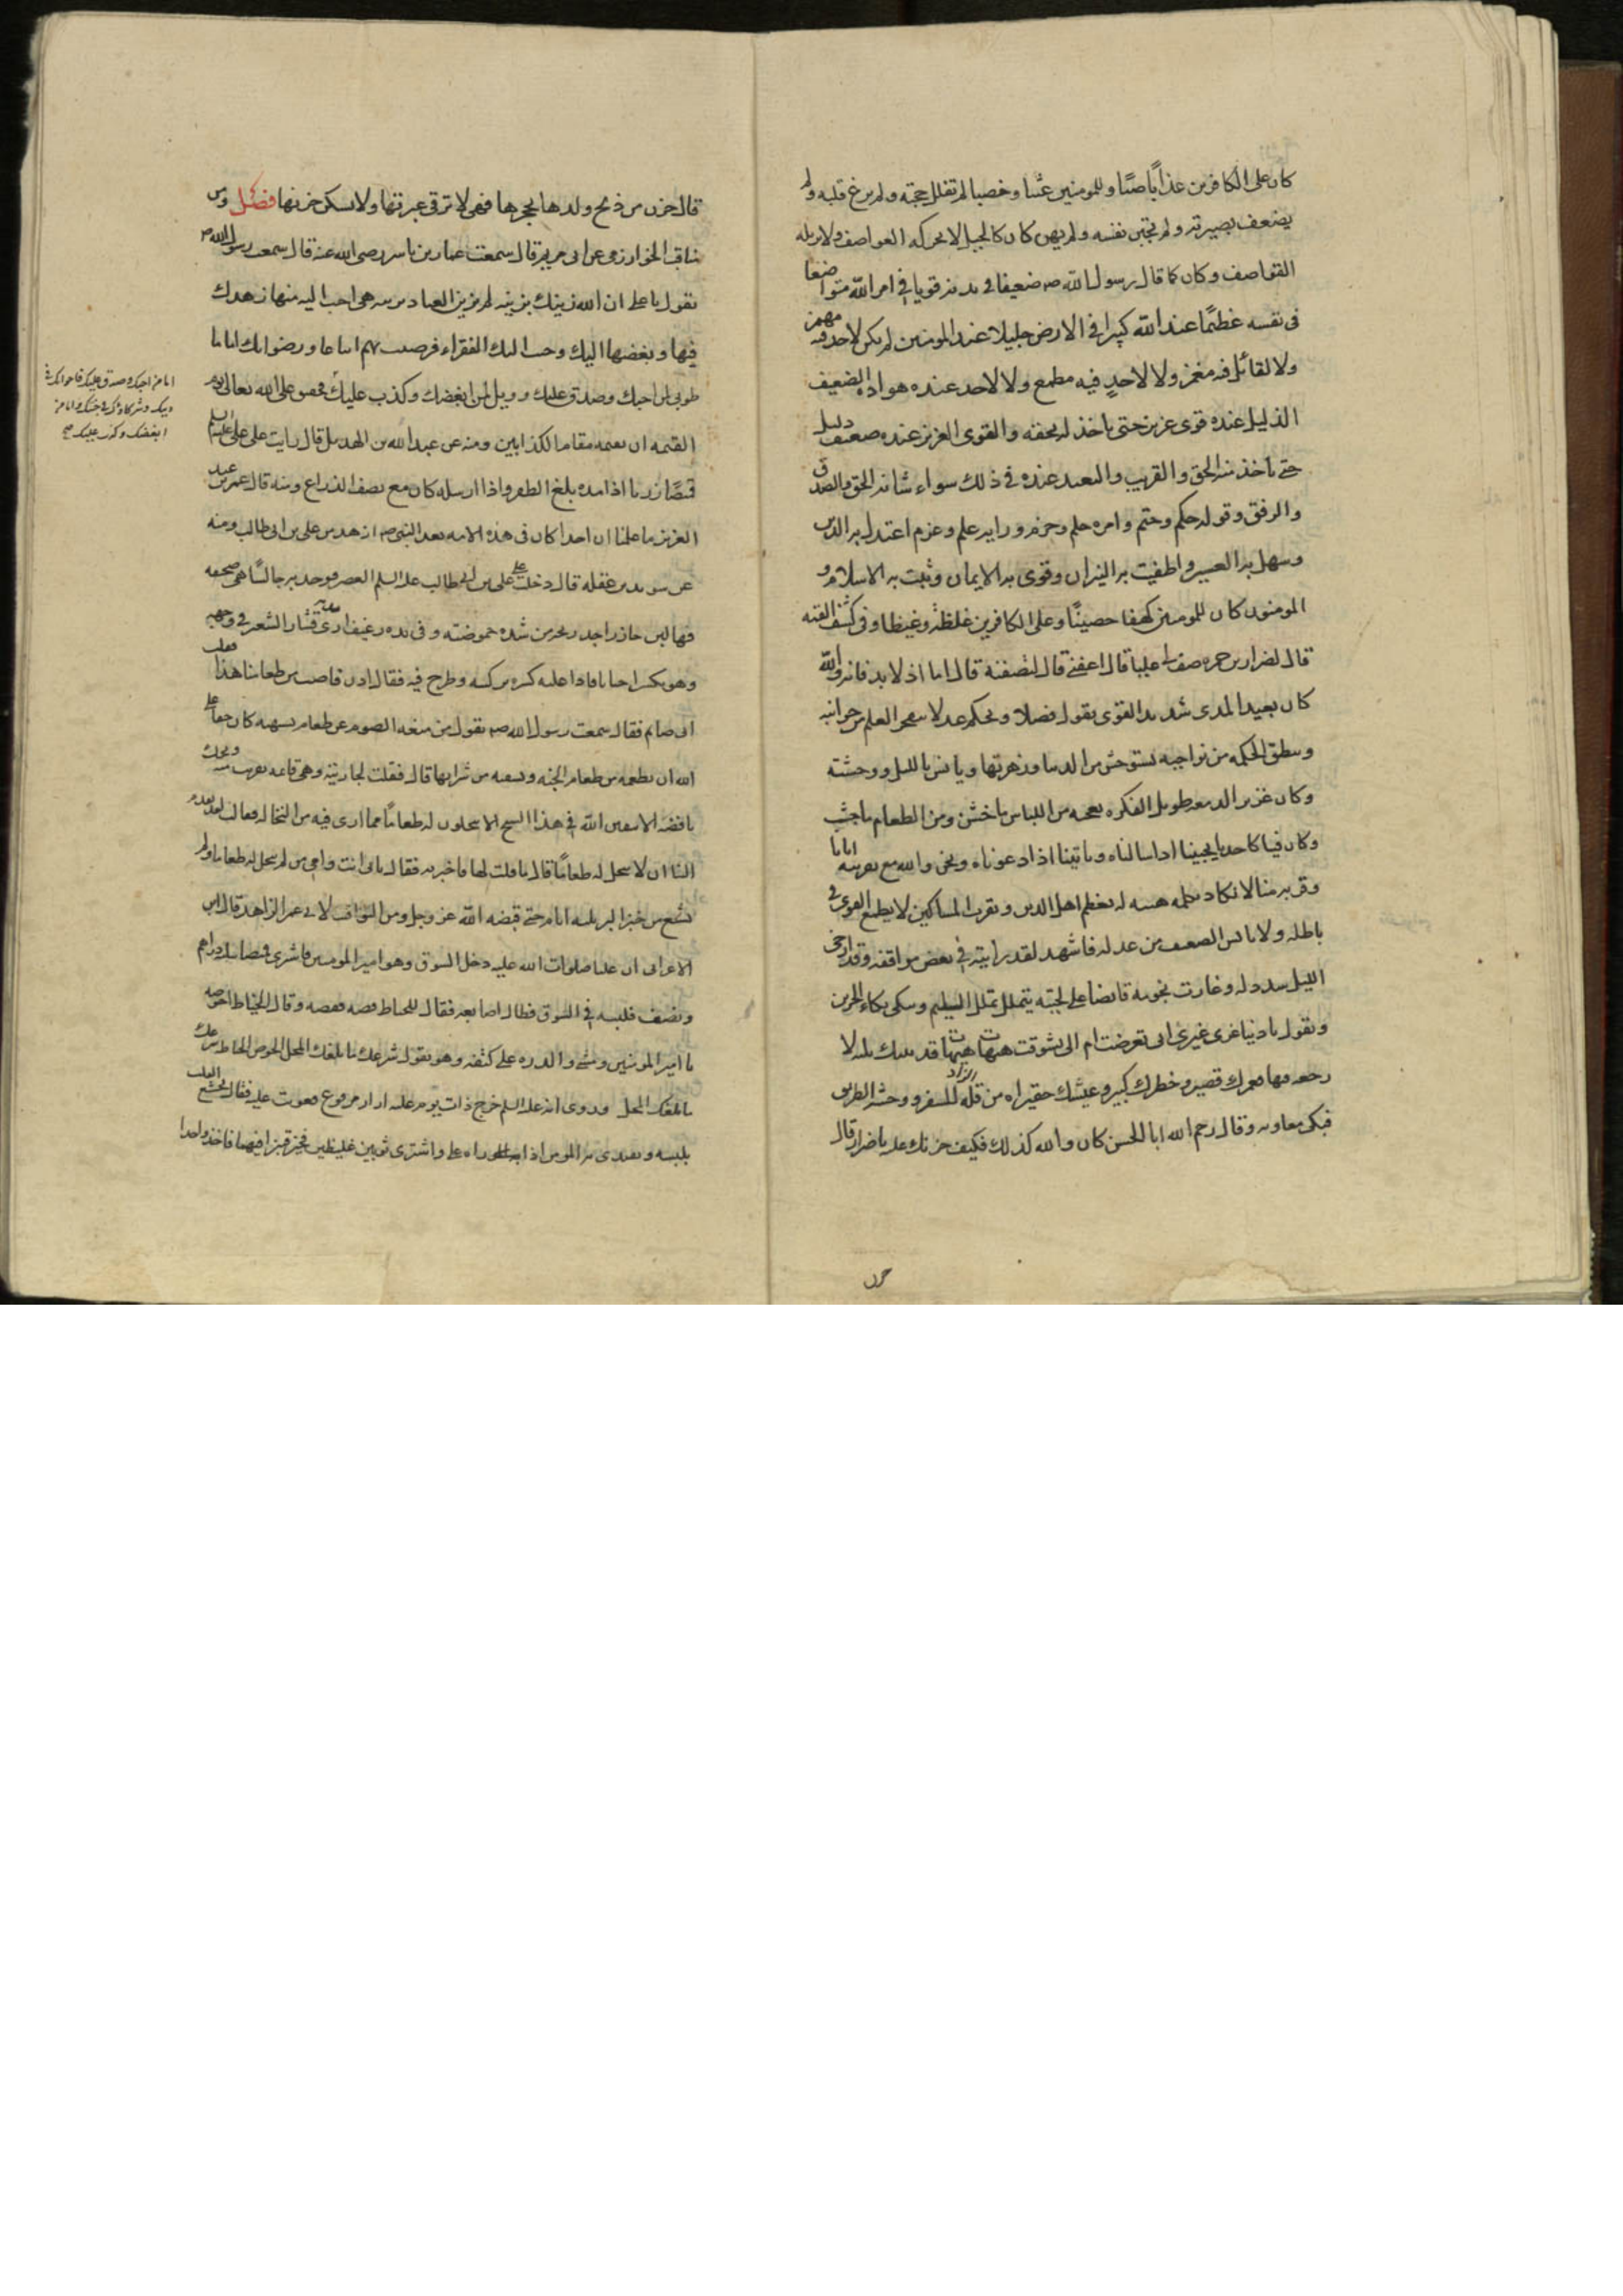 كان على الكافرين عذابا صبا وللمومنين غيثا وخصبا لم تفلل حجته ولم يزغ قلبه ولم
يضعف بصيرته ولم تجبن نفسه ولم يهن كان كالجبل لا تحركه العواصف ولا تزيله
القواصف وكان كما قال رسول الله صم ضعيفا فى بدنه قويا فى امر الله متواضعا
فى نفسه عظيما عند الله كبيرا فى الارض جليلا عند المومنين لم يكن لاحد فيه مهمز
ولا لقائل فيه مغمز ولا لاحد فيه مطمع ولا لاحد عنده هوادة الضعيف
الذليل عنده قوى عزيز حتى ياخذ له بحقه والقوى العزيز عنده ضعيف ذليل
حتى ياخذ منه الحق والقريب والبعيد عنده فى ذلك سواء شانه الحق والصدق
والرفق وقوله حكم وحتم وامره حلم وحزم ورايه علم وعزم اعتدل به الدين
وسهل به العسير واطفيت به النيران وقوى به الايمان وثبت به الاسلام و
المومنون كان للمومنين كهفا حصينا وعلى الكافرين غلظة وغيظا وفى كشف الغمه
قال لضرار بن ضمره صف لى عليا قال اعفنى قال لتصفنه قال اما اذ لا بد فانه والله
كان بعيد المدى شديد القوى يقول فصلا ويحكم عدلا يتفجر العلم من جوانبه
وينطق الحكمه من نواحيه يستوحش من الدنيا وزهرتها ويانس بالليل ووحشته
وكان غزير الدمعه طويل الفكره يعجبه من اللباس ما خشن ومن الطعام ما جشب
وكان فينا كاحدنا يجيبنا اذا سالناه وياتينا اذا دعوناه ونحن والله مع تقريبه ايانا
وقربه منا لا نكاد نكلمه هيبه له يعظم اهل الدين ويقرب المساكين لا يطمع القوى فى
باطله ولا يايس الضعيف من عدله فاشهد لقد رايته فى بعض مواقفه وقد ارخى
الليل سدوله وغارت نجومه قابضا على لحيته يتململ تململ السليم ويبكى بكاء الحزين
ويقول يا دنيا غرى غيرى ابى تعرضت ام الى تشوقت هيهات هيهات قد بتتك ثلثه لا
رجعه فيها فعمرك قصير وخطرك كبير وعيشك حقير اه من قله الزاد للسفر ووحشه الطريق
فبكى معاويه وقال رحم الله ابا الحسن كان والله كذلك فكيف حزنك عليه يا ضرار قال
حزن
قال حزن من ذبح ولدها بحجرها فهى لا ترقى عبرتها ولا يسكن حزنها فصل ومن
مناقب الخوارزمى عن ابى مريم قال سمعت عمار بن ياسر رضى الله عنه قال سمعت رسول الله صم
يقول يا على ان الله زينك بزينه لم يزين العباد بزينه هى احب اليه منها زهدك
فيها وبغضها اليك وحبب اليك الفقراء فرضيت بهم اتباعا ورضوا بك اماما
طوبى لمن احبك وصدق عليك وويل لمن ابغضك وكذب عليك فحق على الله تعالى يوم
القيمه ان يقيمه مقام الكذابين ومنه عن عبد الله بن الهذيل قال رايت على على عليه السلم
قميصا زريا اذا مده بلغ الظفر واذا ارسله كان مع نصف الذراع ومنه قال عمر بن عبد
العزيز ما علمنا ان احدا كان فى هذه الامه بعد النبى صم ازهد من على بن ابى طالب ومنه
عن سويد بن غفله قال دخلت على على بن ابى طالب عليه السلم العصر فوجدته جالسا صحفه
فيها لبن حازر اجد ريحه من شده حموضته وفى يده رغيف ارى قشار الشعير فى وجهه
وهو يكسر احيانا فاذا عليه كسره بركبته وطرح فيه فقال ادن فاصب من طعامنا هذا فقلت
انى صايم فقال سمعت رسول الله صم يقول من منعه الصوم عن طعام يشتهيه كان حقا على
الله ان يطعمه من طعام الجنه ويسقيه من شرابها قال فقلت لجاريته وهى قايمه ويحك
يا فضه الا تتقين الله فى هذا الشيخ الا تنخلون له طعاما مما ارى فيه من النخاله فقالت لقد تقدم
الينا ان لا ننخل له طعاما قال ما قلت لها فاخبرته فقال بابى انت وامى من لم ينخل له طعام ولم
يشبع من خبز البر ثلثه ايام حتى قبضه الله عز وجل ومن اليواقيت لابى عمر الزاهد قال ابن
الاعرابى ان عليا صلوات الله عليه دخل السوق وهو امير المومنين فاشترى قميصا بثلثه دراهم
ونصف فلبسه فى السوق فطال اصابعه فقال للخياط قصه فقصه وقال الخياط احوصه
يا امير المومنين ومشى والدره على كتفه وهو يقول شرعك ما بلغك المحل شرعك
ما بلغك المحل وروى انه عليه السلم خرج ذات يوم عليه ازار مرقوع فعوتب عليه فقال يخشع القلب
بلبسه ويقتدى به المومن اذا راه على واشترى ثوبين غليظين فخير قنبرا فيهما فاخذ واحدا
اما من احبك وصدق عليك فاخوانك فى
دينك وشركاؤك فى جنتك واما من
ابغضك وكذب عليك صح